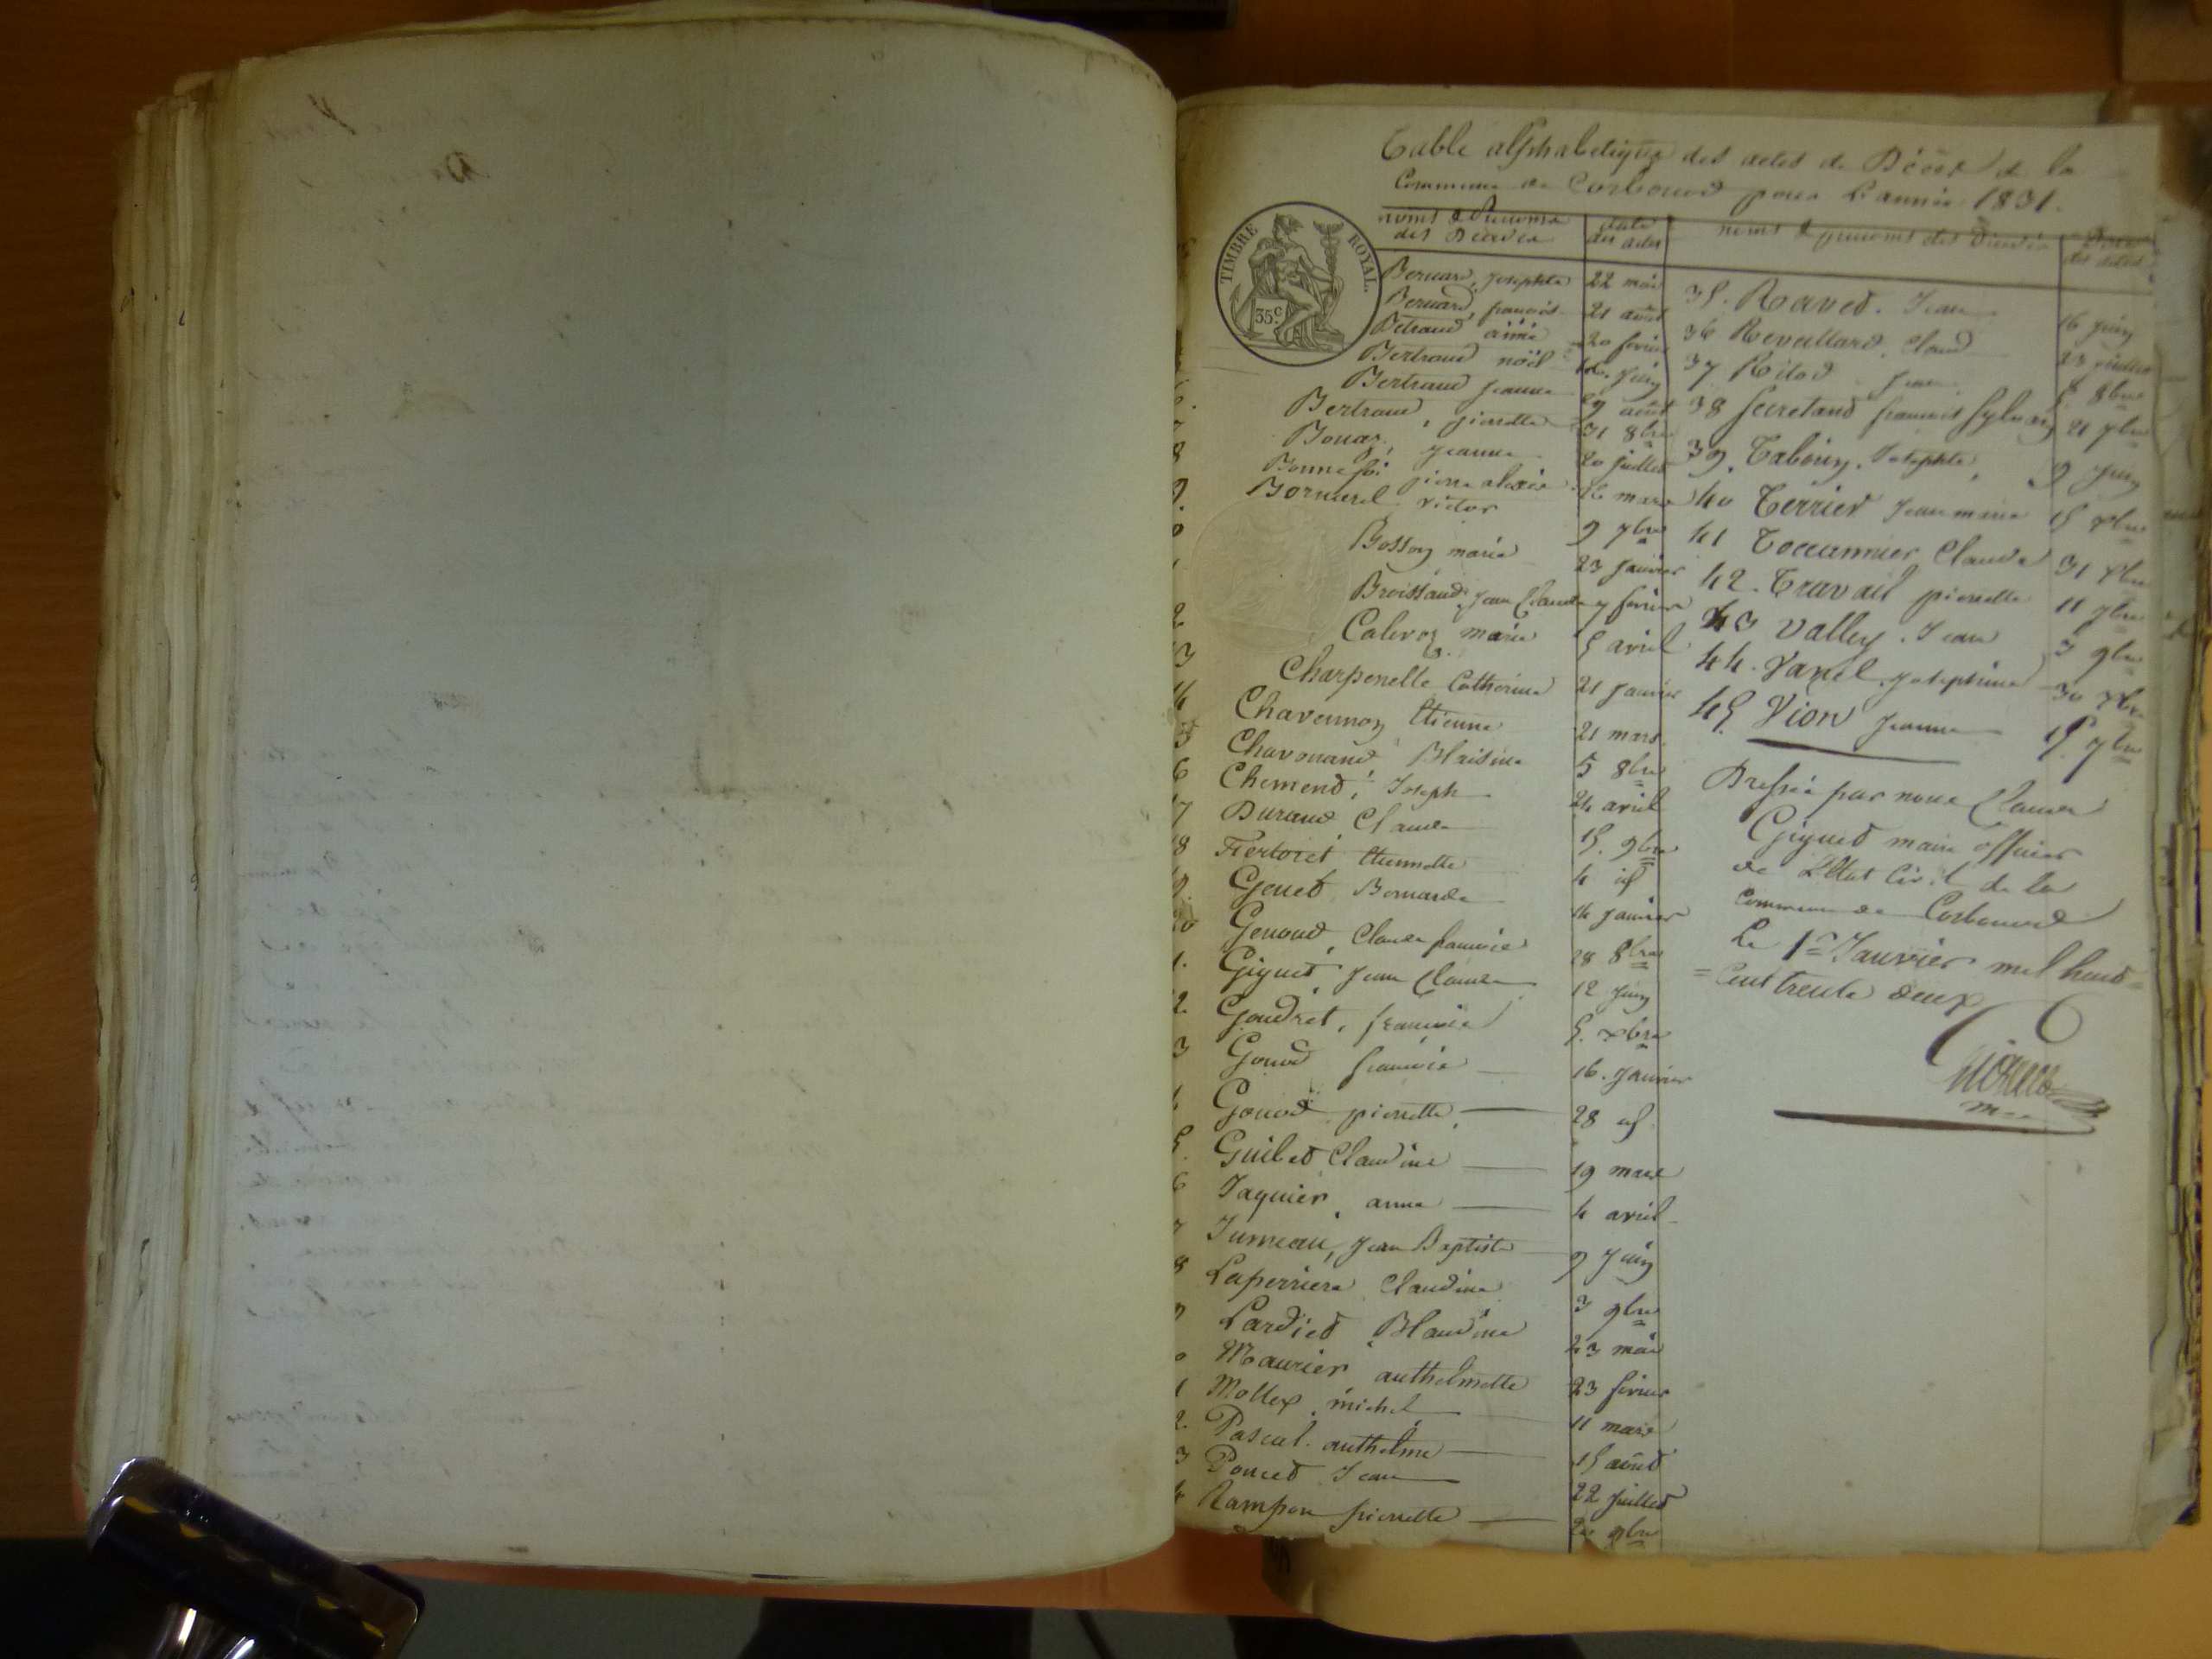 Table alphabetique des actes de Décès de la
Commune de Corbonod pour l'année 1831.
TIMBRE ROYAL.
35c
noms & Prenoms des Décédés
date des actes
Bernard, josephte 22 mai
Bernard, francois 21 août
Betrand aimé 20 fevrier
Bertrand noël juin
Bertrand jeanne 29 août
Bertrand, pierrette 31 8bre
Bouaz, jeanne 20 juillet
Bonnefoi pierre alexis 16 mars
Bornarel victor 9 7bre
Bosson marie 23 janvier
Broissand, jean Claude 7 fevrier
Caloroz marie 5 avril
Charpenelle Catherine 21 janvier
Chavannoz Etienne 21 mars
Chavouand Blaisine 5 8bre
6 Chemend, Joseph 24 avril
7 Durand Claude 15. 9bre
8 Fertoret Etiennette 4 id
Genet Bernarde 14 janvier
20 Genoud, Claude francois 28 8bre
1. Giguet, jean Claude 12 juin
2. Goudret, francois 5. xbre
3 Gonod francois 16. janvier
Gonod pierrette 28 id
5. Guilet Claudine 19 mars
6 Jaquier, anne 4 avril
7 Jumeau, jean Baptiste 9 juin
8 Laperriere Claudine 3 9bre
9 Lardiet Blandine 23 mai
0 Maurier anthelmette 23 fevrier
1 Mollex, michel 11 mars
2. Pascal. anthelme 15 août
3 Poncet Jean 22 juillet
4 Rampon pierrette 20 9bre
noms & prenoms des Décédés
Date des actes
35. Ravet. Jean 16 juin
36 Revellard, Claud 23 juillet
37 Ritod jean 5 8bre
38 Secretand francois Sylvain 21 7bre
39. Tabouin. Josephte, 9 juin
40 Terrier Jeanmarie 15 xbre
41 Toccannier Claude 31 xbre
42. Travail pierrette 11 7bre
43 Valley. Jean 3 9bre
44. Vanel Josephine 30 xbre
45. Vion jeanne 15 7bre
Dressée par nous Claude
Giguet maire officier
de l'Etat Civil de la
Commune de Corbonod
Le 1er Janvier mil huit=
=Cent trente deux
Giguet